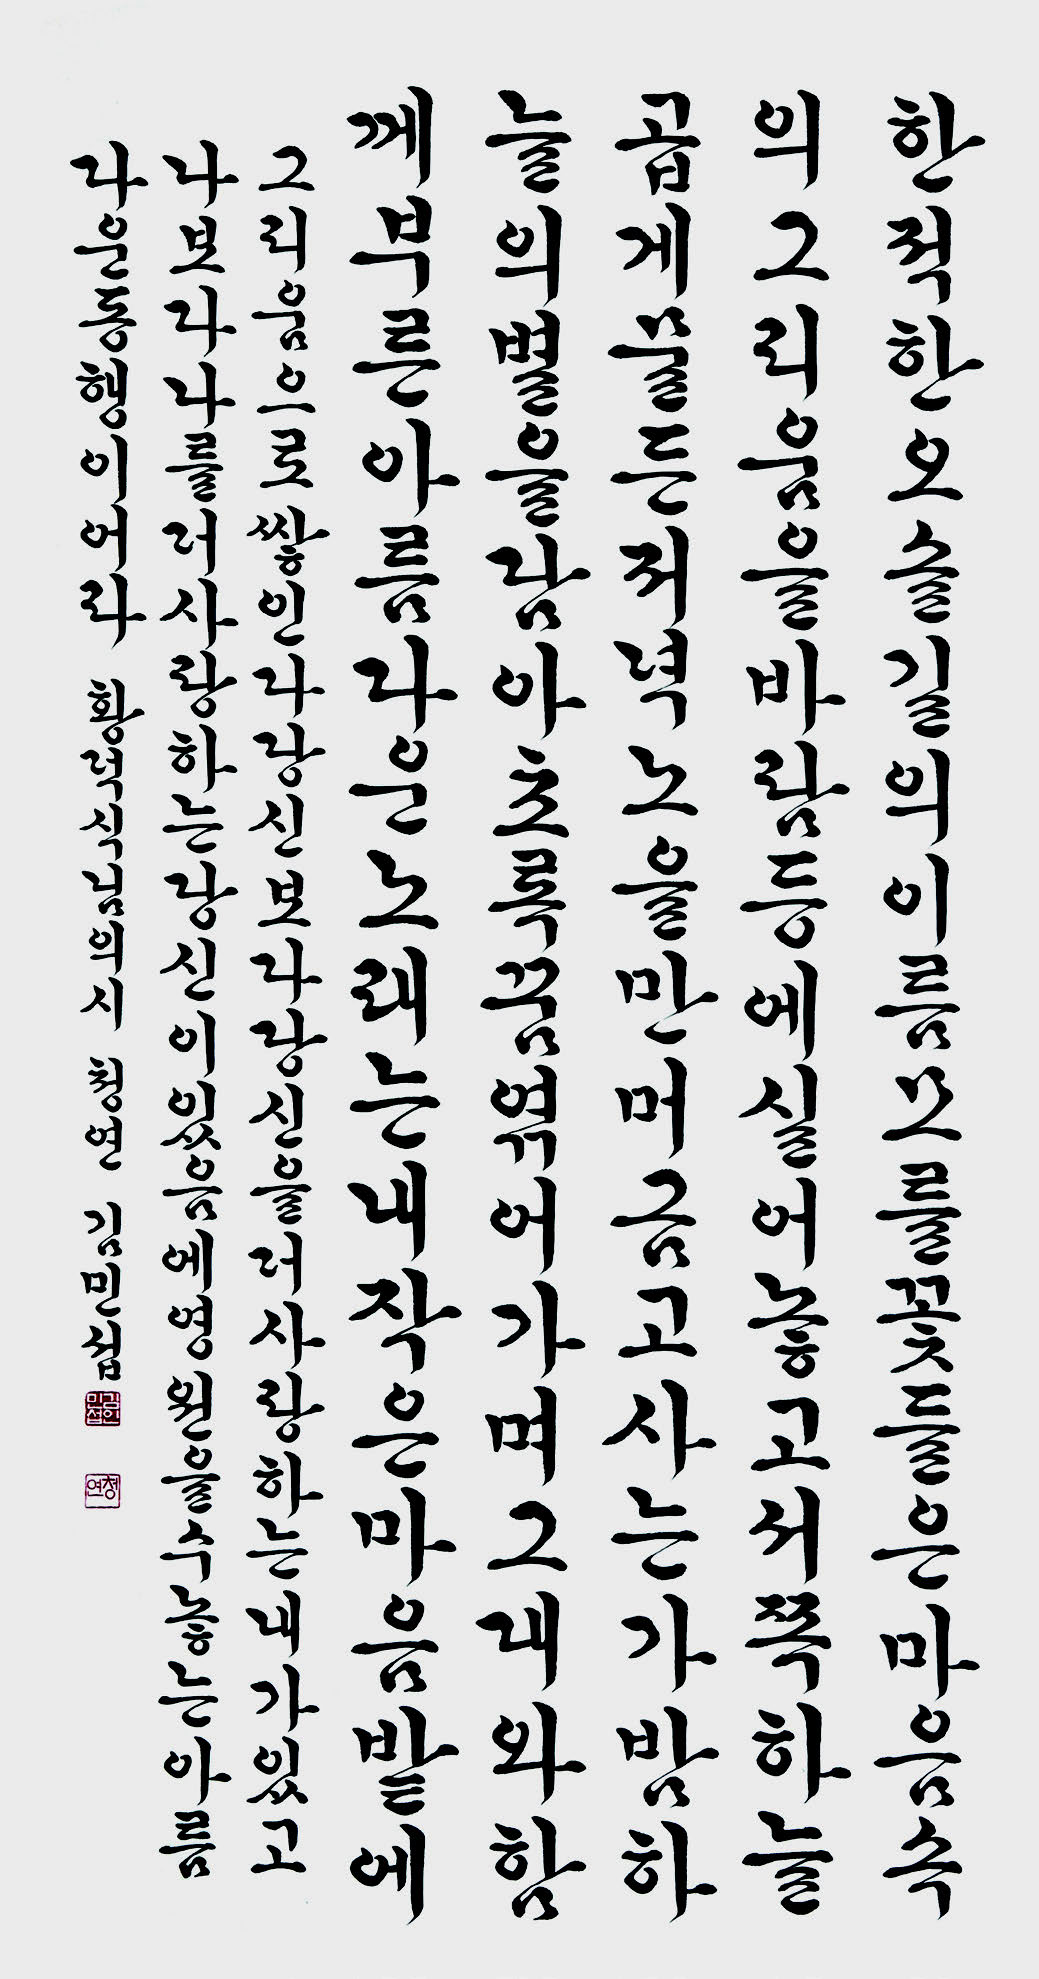 한적한오솔길의이름모를꽃들은마음속
의그리움을바람등에실어놓고서쪽하늘
곱게물든저녁노을만머금고사는가밤하
늘의별을담아초록꿈엮어가며그대와함
께부른아름다운노래는내작은마음밭에
그리움으로쌓인다당신보다당신을더사랑하는내가있고
나보다나를더사랑하는당신이있음에영원을수놓는아름
다운동행이어라 황덕식님의시 청연 김민섭
김민섭
청연